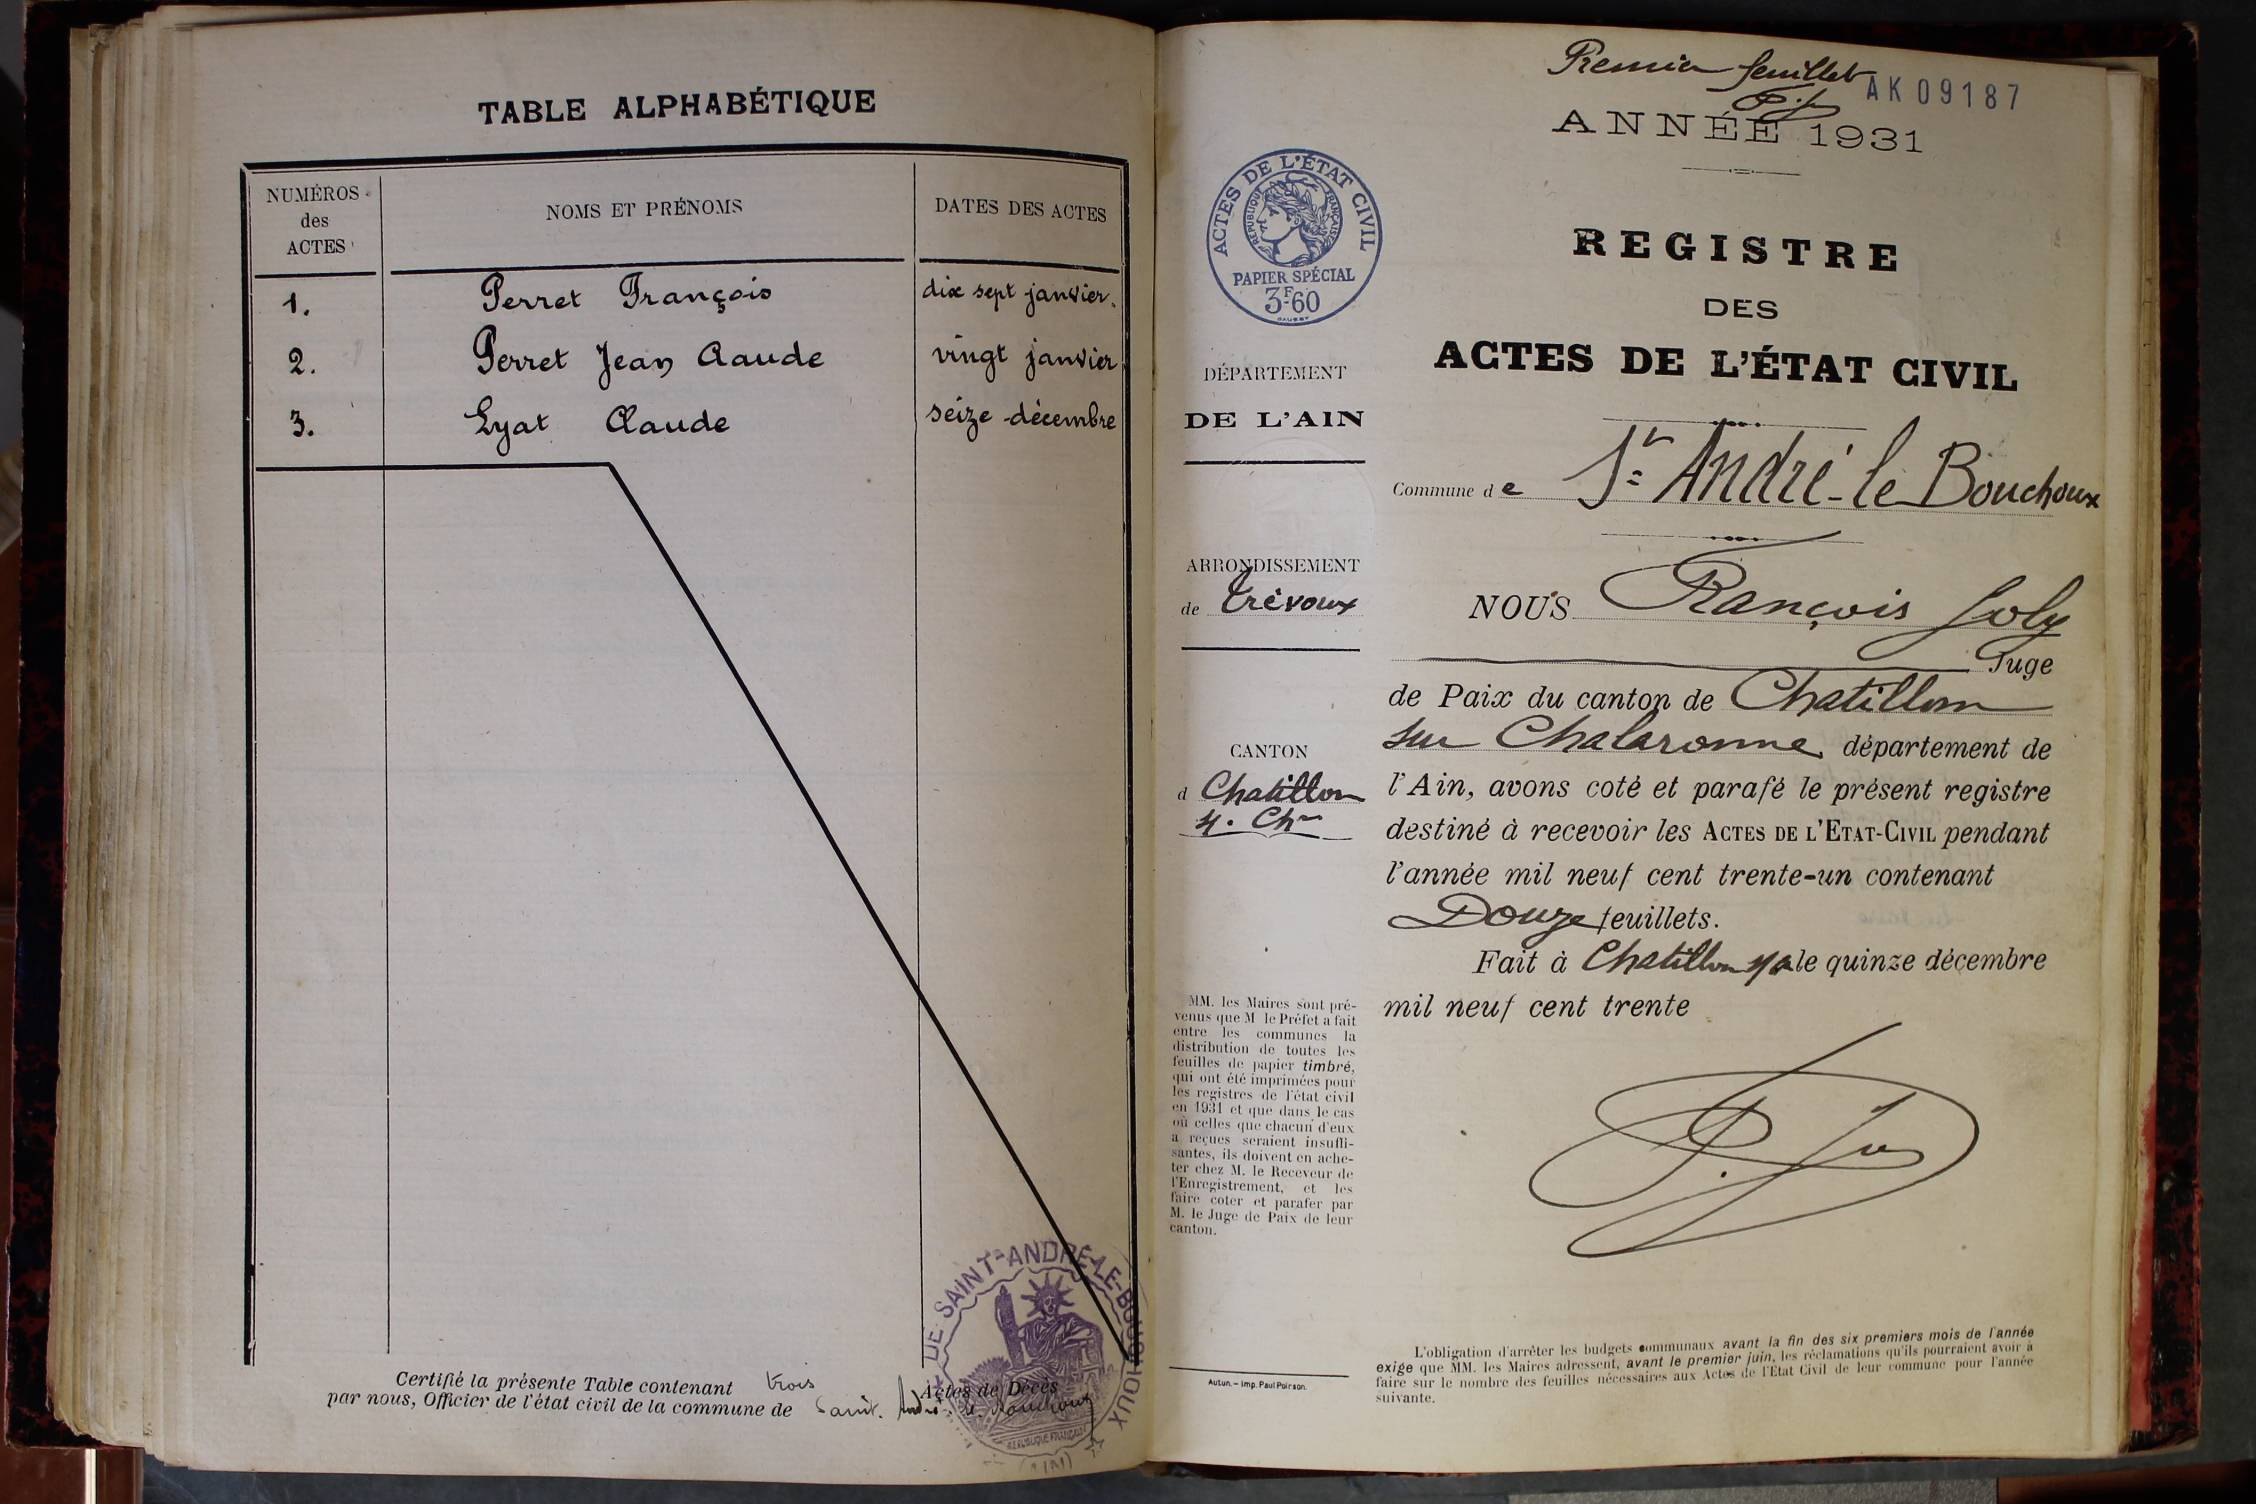 TABLE ALPHABÉTIQUE
NUMÉROS
des
ACTES
NOMS ET PRÉNOMS
DATES DES ACTES
1. Perret François dix sept janvier.
2. Perret Jean Claude vingt janvier
3. Lyat Claude seize décembre
Certifié la présente Table contenant trois Actes de Décès
par nous, Officier de l'état civil de la commune de Saint. André. le. Bouchoux
DE SAINT-ANDRÉ-LE-BOUCHOUX
RÉPUBLIQUE FRANÇAISE
(AIN)
Premier feuillet
AK 09187
ANNÉE 1931
ACTES DE L'ÉTAT CIVIL
RÉPUBLIQUE FRANÇAISE
PAPIER SPÉCIAL
3F60
REGISTRE
DES
ACTES DE L'ÉTAT CIVIL
DÉPARTEMENT
DE L'AIN
Commune de St André-le Bouchoux
ARRONDISSEMENT
de Trévoux
CANTON
d Chatillon
s. Chne
NOUS François Joly
Juge
de Paix du canton de Chatillon
sur Chalaronne département de
l'Ain, avons coté et parafé le présent registre
destiné à recevoir les ACTES DE L'ETAT-CIVIL pendant
l'année mil neuf cent trente-un contenant
Douze feuillets.
Fait à Chatillon le quinze décembre
mil neuf cent trente
MM. les Maires sont pré-
venus que M le Préfet a fait
entre les communes la
distribution de toutes les
feuilles de papier timbré,
qui ont été imprimées pour
les registres de l'état civil
en 1931 et que dans le cas
où celles que chacun d'eux
a reçues seraient insuffi-
santes, ils doivent en ache-
ter chez M. le Receveur de
l'Enregistrement, et les
faire coter et parafer par
M. le Juge de Paix de leur
canton.
Autun. – Imp. Paul Poirson.
L'obligation d'arrêter les budgets communaux avant la fin des six premiers mois de l'année
exige que MM. les Maires adressent, avant le premier juin, les réclamations qu'ils pourraient avoir à
faire sur le nombre des feuilles nécessaires aux Actes de l'Etat Civil de leur commune pour l'année
suivante.